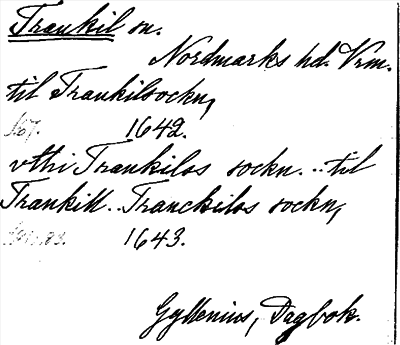 Trankil sn.
Nordmarks hd. Vrm.
til Trankilsockn,
1642.
vthi Trankilos sockn...til
Trankill.. Tranckilos sockn,
1643.
Gyllenius, Dagbok.